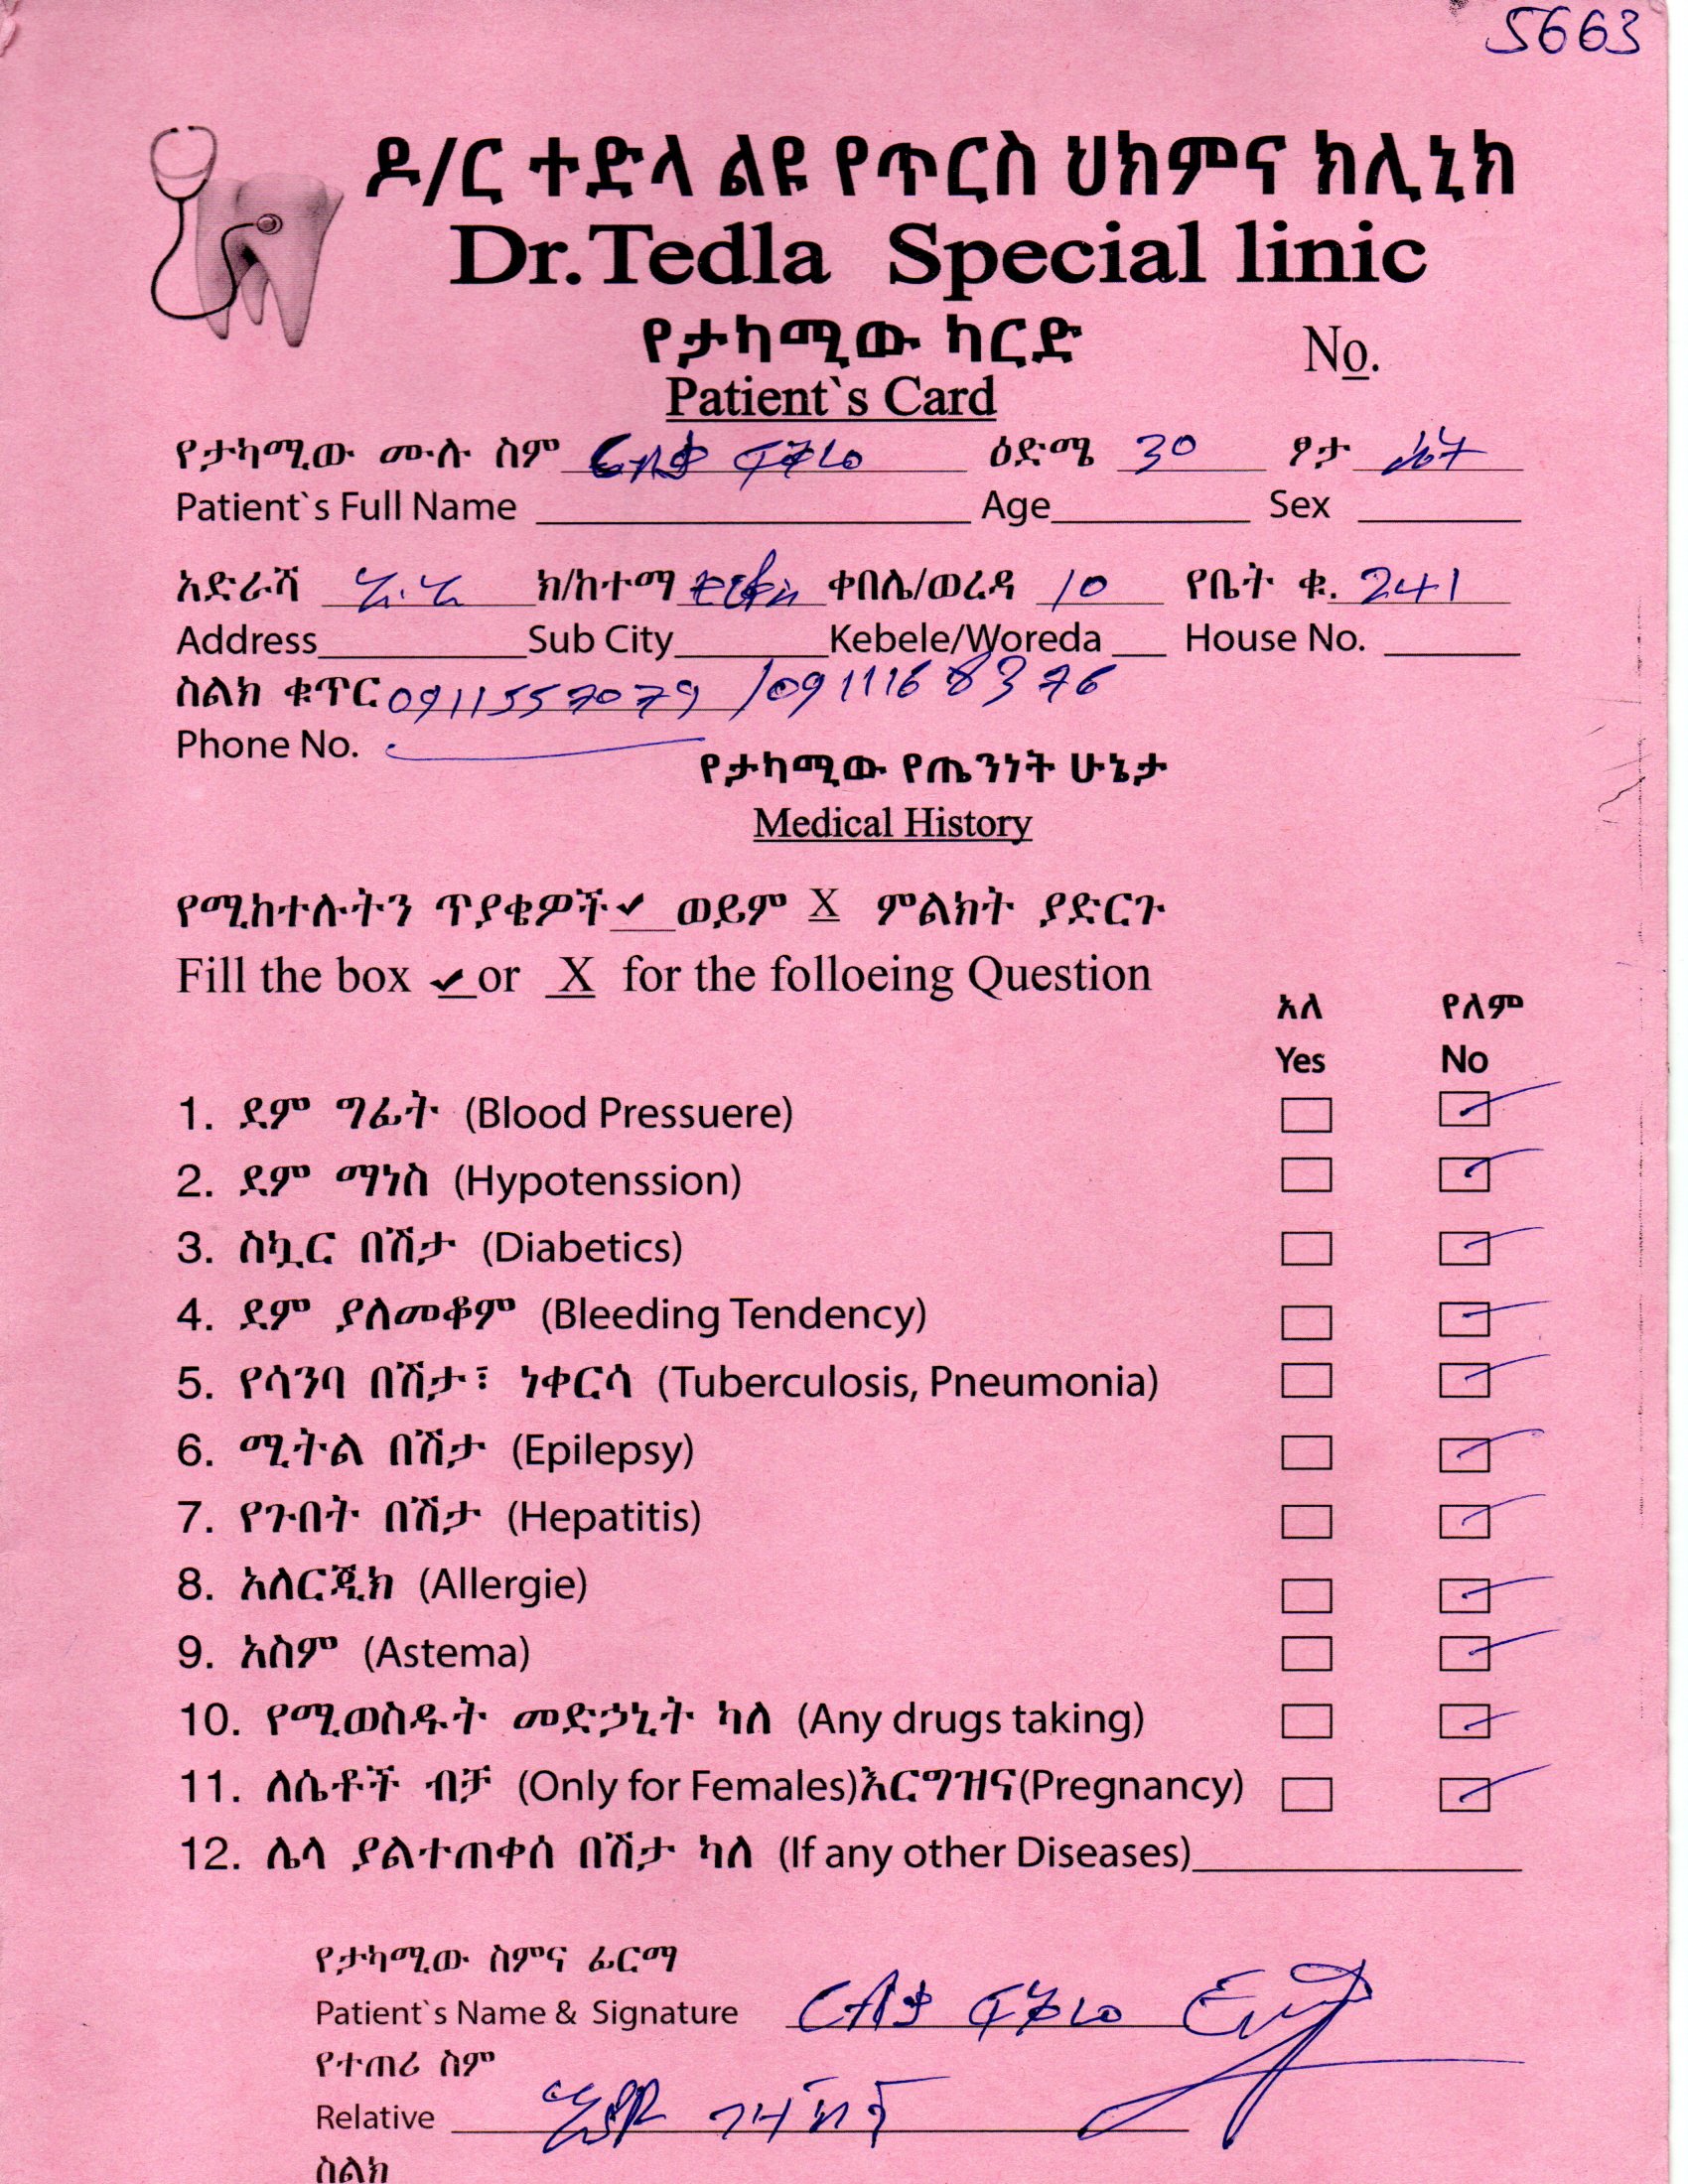 5663
ዶ/ር ተድላ ልዩ የጥርስ ህክምና ክሊኒክ
Dr.Tedla Special linic
የታካሚው ካርድ No.
Patient`s Card
የታካሚው ሙሉ ስም ርብቃ ፍቅሬ ዕድሜ 30 ፆታ ሴት
Patient`s Full Name Age Sex
አድራሻ አ.አ ክ/ከተማ ቀበሌ/ወረዳ 10 የቤት ቁ. 241
Address Sub City Kebele/Woreda House No.
ስልክ ቁጥር 0911557079 /0911168376
Phone No.
የታካሚው የጤንነት ሁኔታ
Medical History
የሚከተሉትን ጥያቄዎች ✓ ወይም X ምልክት ያድርጉ
Fill the box ✓ or X for the folloeing Question
አለ የለም
Yes No
1. ደም ግፊት (Blood Pressuere)
2. ደም ማነስ (Hypotenssion)
3. ስኳር በሽታ (Diabetics)
4. ደም ያለመቆም (Bleeding Tendency)
5. የሳንባ በሽታ፣ ነቀርሳ (Tuberculosis, Pneumonia)
6. ሚትል በሽታ (Epilepsy)
7. የጉበት በሽታ (Hepatitis)
8. አለርጂክ (Allergie)
9. አስም (Astema)
10. የሚወስዱት መድኃኒት ካለ (Any drugs taking)
11. ለሴቶች ብቻ (Only for Females)እርግዝና(Pregnancy)
12. ሌላ ያልተጠቀሰ በሽታ ካለ (If any other Diseases)
የታካሚው ስምና ፊርማ
Patient`s Name & Signature ርብቃ ፍቅሬ
የተጠሪ ስም
Relative
ስልክ